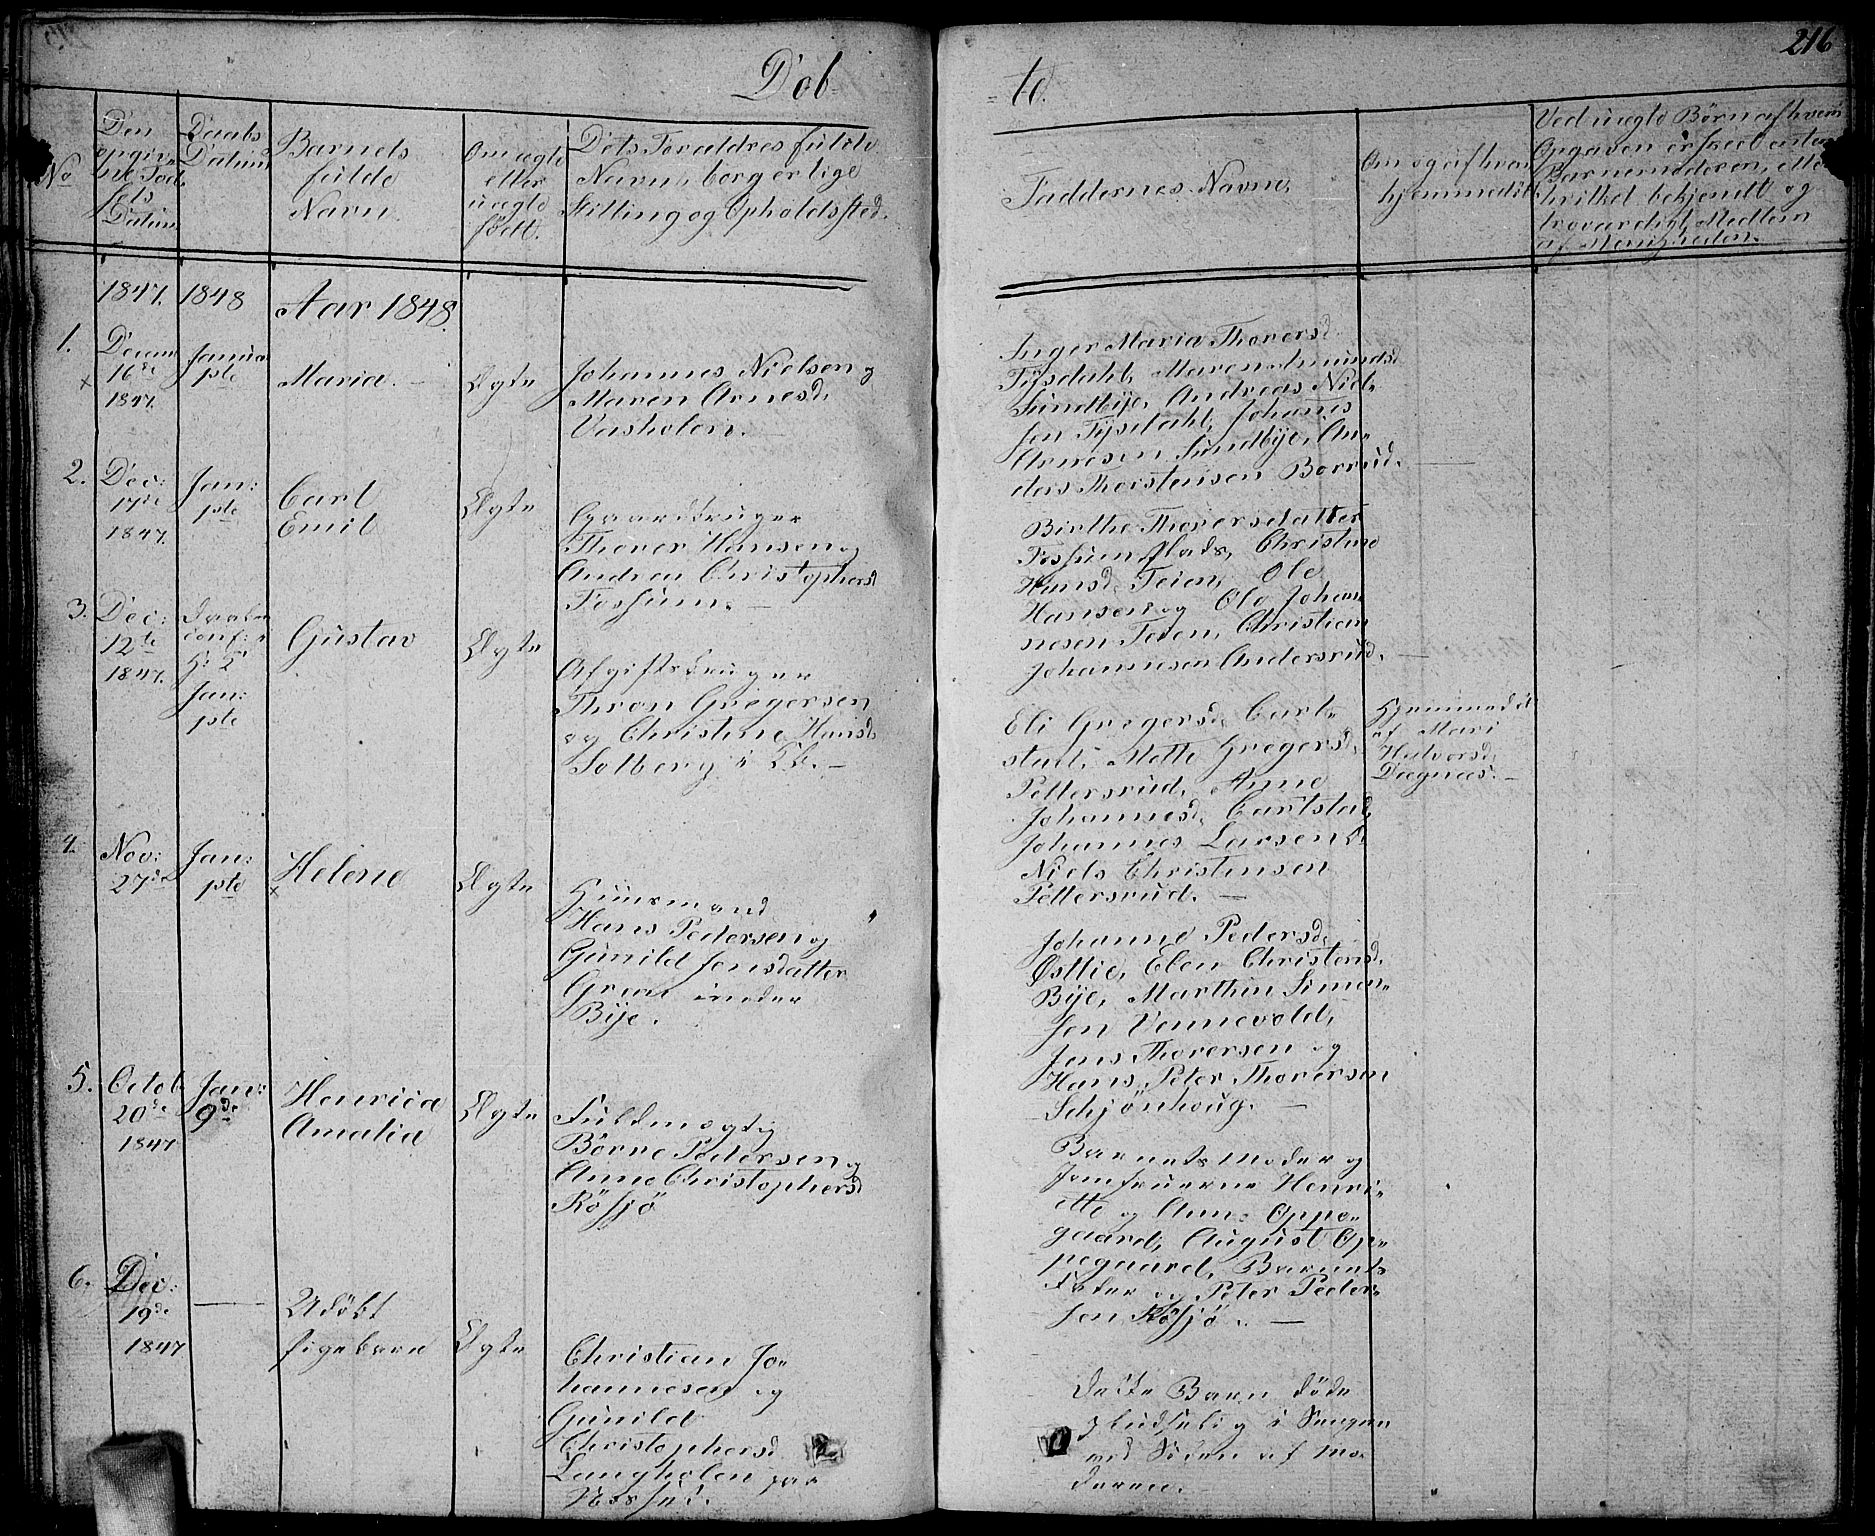 216
Døb-
-te.
No
Den
opgiv-
ne Föd-
sels
Datum
Daabs
Datum
Barnets
fulde
Navn
Om ægte
eller
uægte
født.
Dets Forældres fulde
Navn, borgerlige
Stilling og Opholdssted.
Faddernes Navne,
Om og af hvem
hjemmedöbt
Ved uægte Børn af hvem
Opgaven er skeet enten
Barnemoderen, eller
hvilket bekjendt og
troværdigt Medlem
af Menigheden.
1847. 1848 Aar 1848.
1.
Decem
16de
1847.
Janua
1ste
Maria. -
Ægte
Johannes Nielsen og
Maren Arnesd.
Vasholen. -
Inger Maria Thorersd.
Tysdahl, Maren Amundsd.
Sundbye, Andreas Niel-
sen Tysdahl, Johanes
Arnesen Sundbye, An-
ders Thorstensen Borrud. -
2.
Dec:
17de
1847.
Jan:
1ste
Carl
Emil
Ægte
Gaardbruger
Thorer Hansen og
Andrea Christophersd
Fossum. -
Birthe Thorersdatter
Fossum plads, Christine
Hansd. Teien, Ole
Hansen og Ole Johan-
nesen Teien, Christian
Johannesen Andersrud. -
3.
Dec:
12te
1847.
Daaben
conf: i
Jan:
1ste
Gustav
Ægte
Afgiftsbruger
Thron Gregersen
og Christine Hansd.
Solberg i
Eli Gregersd. Carl-
stad, Mette Gregersd.
Pettersrud, Anne
Johannesd. Carlstad,
Johannes Larsen
Niels Christensen
Pettersrud. -
Hjemmedöbt
af Mari
Halvorsd.
Dægnæs. -
4.
Nov:
27de
Jan:
1ste
Helene
Ægte
Huusmand
Hans Pedersen og
Gunild Jensdatter
Green under
Bije.
Johanne Pedersd.
Østlie, Elen Christensd.
Bije, Marthin Simen-
sen Vennevold,
Jens Thorersen og
Hans Peter Thorersen
Schjönhoug. -
5.
Octob.
20de
1847
Jan:
9de
Henrica
Amalia
Ægte
Fuldmægtig
Börre Pedersen og
Anne Christophersd
Rösjö
Barnets Moder og
Jomfruerne Henri-
ette og Anne Oppe-
gaard, August Op-
pegaard, Barnets
Fader og Peter Peder-
sen Rösjö. -
6.
Dec:
19de
1847
-
Udøbt
pigebarn
Ægte
Christian Jo-
hannesen og
Gunild
Christophersd
Langholen paa
Dette Barn döde
i Sengen
ved Siden af Mo-
deren.